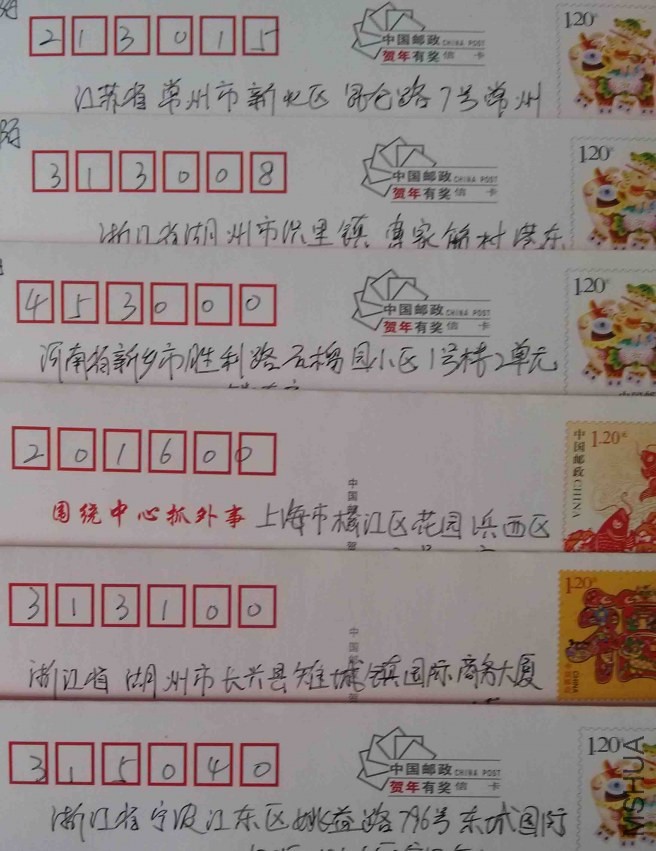 213015
中国邮政 CHINA POST
贺年有奖 信 卡
1.20元
江苏省常州市新北区昆仑路7号常州
313008
中国邮政 CHINA POST
贺年有奖 信 卡
1.20元
浙江省湖州市 里镇 家 村 东
453000
中国邮政 CHINA POST
贺年有奖 信 卡
1.20元
河南省新乡市胜利路石榴园小区1号楼2单元
201600
中国邮政 CHINA
1.20元
中国
贺
围绕中心抓外事
上海市 江区花园浜西区
313100
1.20元
中国邮政
CHINA
中国邮
贺
浙江省湖州市长兴县雉城镇国际商务大厦
315040
中国邮政 CHINA POST
贺年有奖 信 卡
1.20元
浙江省宁波江东区 路796号东城国际
MSHUA